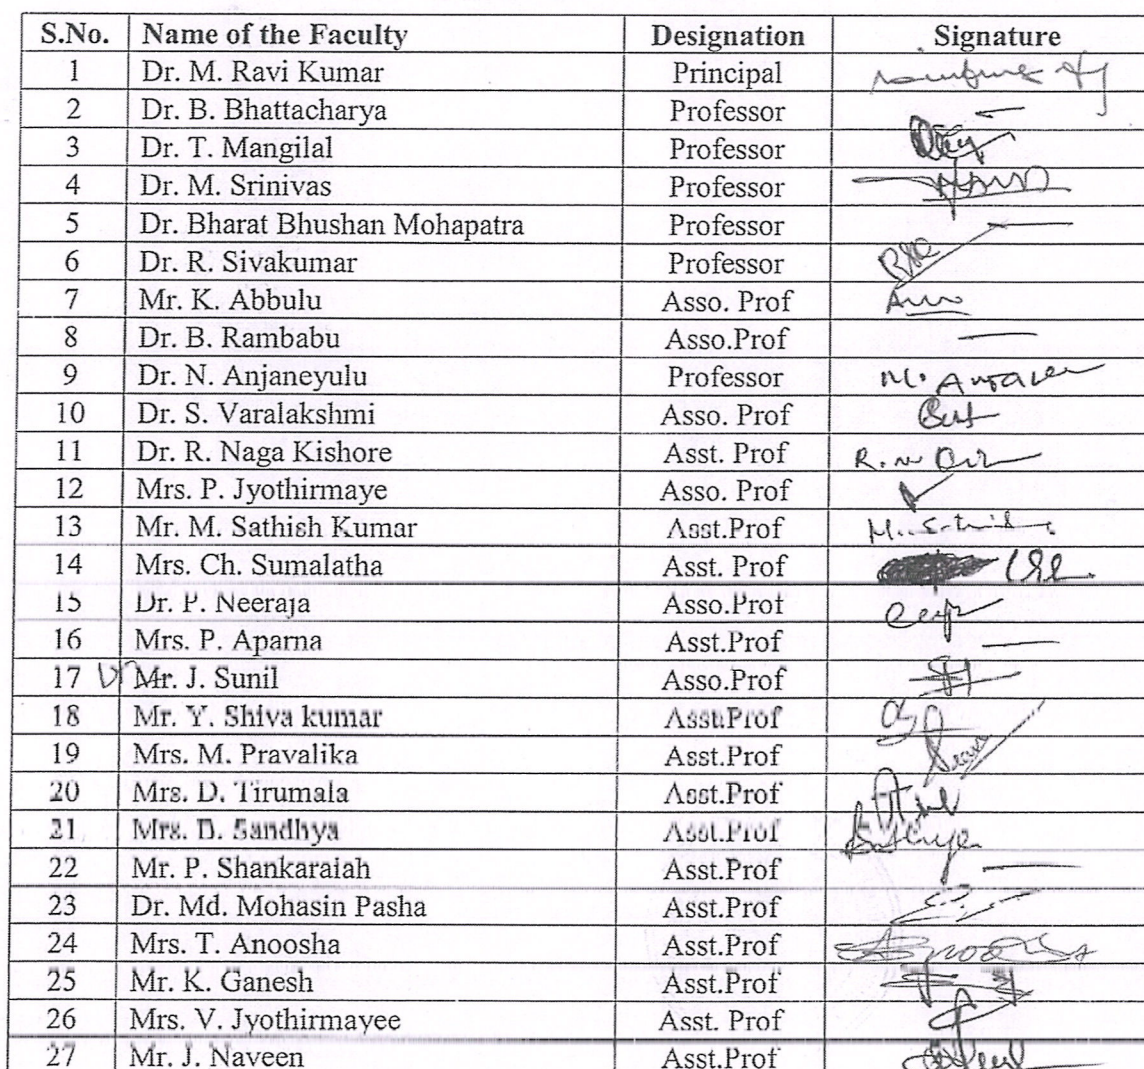 S.No. Name of the Faculty Designation Signature
1 Dr. M. Ravi Kumar Principal
2 Dr. B. Bhattacharya Professor
3 Dr. T. Mangilal Professor
4 Dr. M. Srinivas Professor
5 Dr. Bharat Bhushan Mohapatra Professor
6 Dr. R. Sivakumar Professor
7 Mr. K. Abbulu Asso. Prof
8 Dr. B. Rambabu Asso.Prof
9 Dr. N. Anjaneyulu Professor
10 Dr. S. Varalakshmi Asso. Prof
11 Dr. R. Naga Kishore Asst. Prof
12 Mrs. P. Jyothirmaye Asso. Prof
13 Mr. M. Sathish Kumar Asst.Prof
14 Mrs. Ch. Sumalatha Asst. Prof
15 Dr. P. Neeraja Asso.Prof
16 Mrs. P. Aparna Asst.Prof
17 Dr Mr. J. Sunil Asso.Prof
18 Mr. Y. Shiva kumar Asst.Prof
19 Mrs. M. Pravalika Asst.Prof
20 Mrs. D. Tirumala Asst.Prof
21 Mrs. D. Sandhya Asst.Prof
22 Mr. P. Shankaraiah Asst.Prof
23 Dr. Md. Mohasin Pasha Asst.Prof
24 Mrs. T. Anoosha Asst.Prof
25 Mr. K. Ganesh Asst.Prof
26 Mrs. V. Jyothirmayee Asst. Prof
27 Mr. J. Naveen Asst.Prof